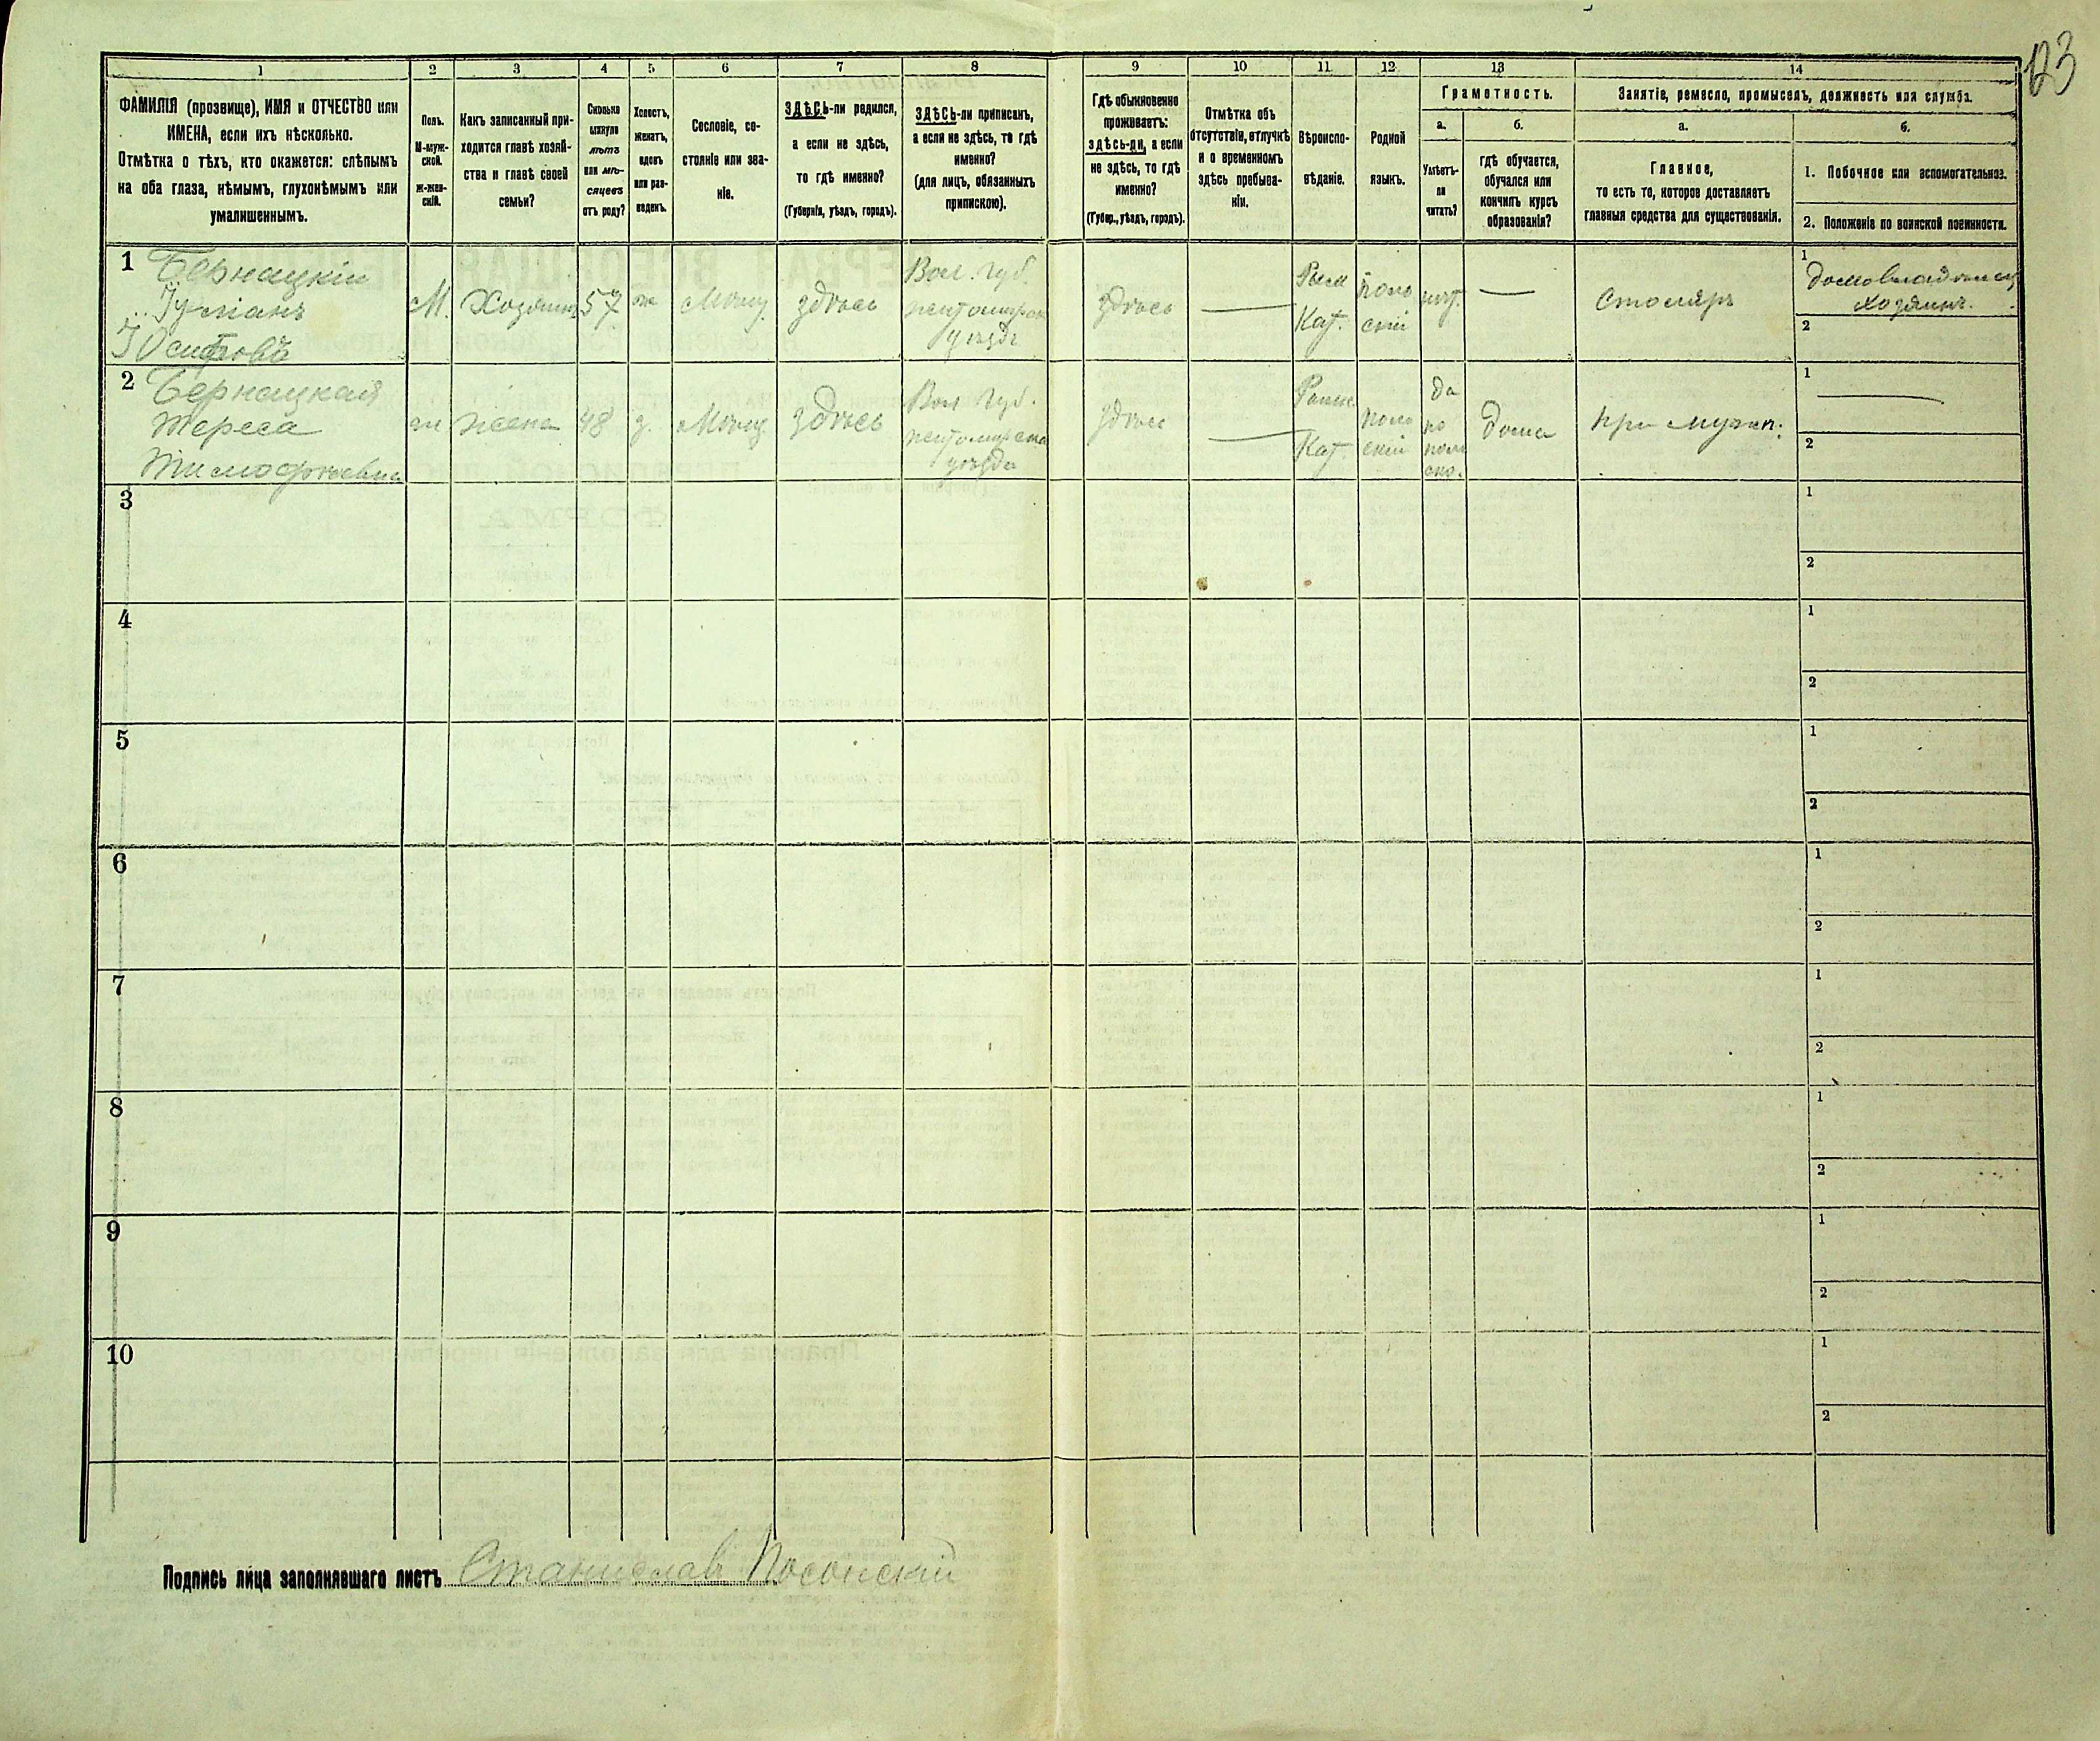 123
1 2 3 4 5 6 7 8 9 10 11 12 13 14
ФАМИЛІЯ (прозвище), ИМЯ и ОТЧЕСТВО или
ИМЕНА, если ихъ нѣсколько.
Отмѣтка о тѣхъ, кто окажется: слѣпымъ
на оба глаза, нѣмымъ, глухонѣмымъ или
умалишеннымъ.
Полъ.
М-муж-
ской.
ж-жен-
скій.
Какъ записанный при-
ходится главѣ хозяй-
ства и главѣ своей
семьи?
Сколько
минуло
лѣтъ
или мѣ-
сяцевъ
отъ роду?
Холостъ,
женатъ,
вдовъ
или раз-
веденъ.
Сословіе, со-
стояніе или зва-
ніе.
ЗДѢСЬ-ли родился,
а если не здѣсь,
то гдѣ именно?
(Губернія, уѣздъ, городъ).
ЗДѢСЬ-ли приписанъ,
а если не здѣсь, то гдѣ
именно?
(для лицъ, обязанныхъ
припискою).
Гдѣ обыкновенно
проживаетъ:
здѣсь-ли, а если
не здѣсь, то гдѣ
именно?
(Губер., уѣздъ, городъ).
Отмѣтка объ
отсутствіи, отлучкѣ
и о временномъ
здѣсь пребыва-
ніи.
Вѣроиспо-
вѣданіе.
Родной
языкъ.
Грамотность.
а.
Умѣетъ-
ли
читать?
б.
гдѣ обучается,
обучался или
кончилъ курсъ
образованія?
Занятіе, ремесло, промыселъ, должность или служба.
а.
Главное,
то есть то, которое доставляетъ
главныя средства для существованія.
б.
1. Побочное или вспомогательное.
2. Положеніе по воинской повинности.
1 Бернацкій
Іуліанъ
Іосифовъ
М. Хозяинъ 57 ж
здѣсь
Вол. губ.
уѣзда
здѣсь
—
Рим
Кат.
поль
скій
нѣт.
—
Столяръ
1
домовладѣлец
хозяинъ.
2
2 Бернацкая
Тереса
Тимофѣевна
ж жена 48 з.
здѣсь
Вол губ.
уѣзда
здѣсь
—
Римс
Кат.
поль
скій
да
по
поль
ски.
дома
при мужѣ.
1
2
3 1 2
4 1 2
5 1 2
6 1 2
7 1 2
8 1 2
9 1 2
10 1 2
Подпись лица заполнявшаго листъ Станислав